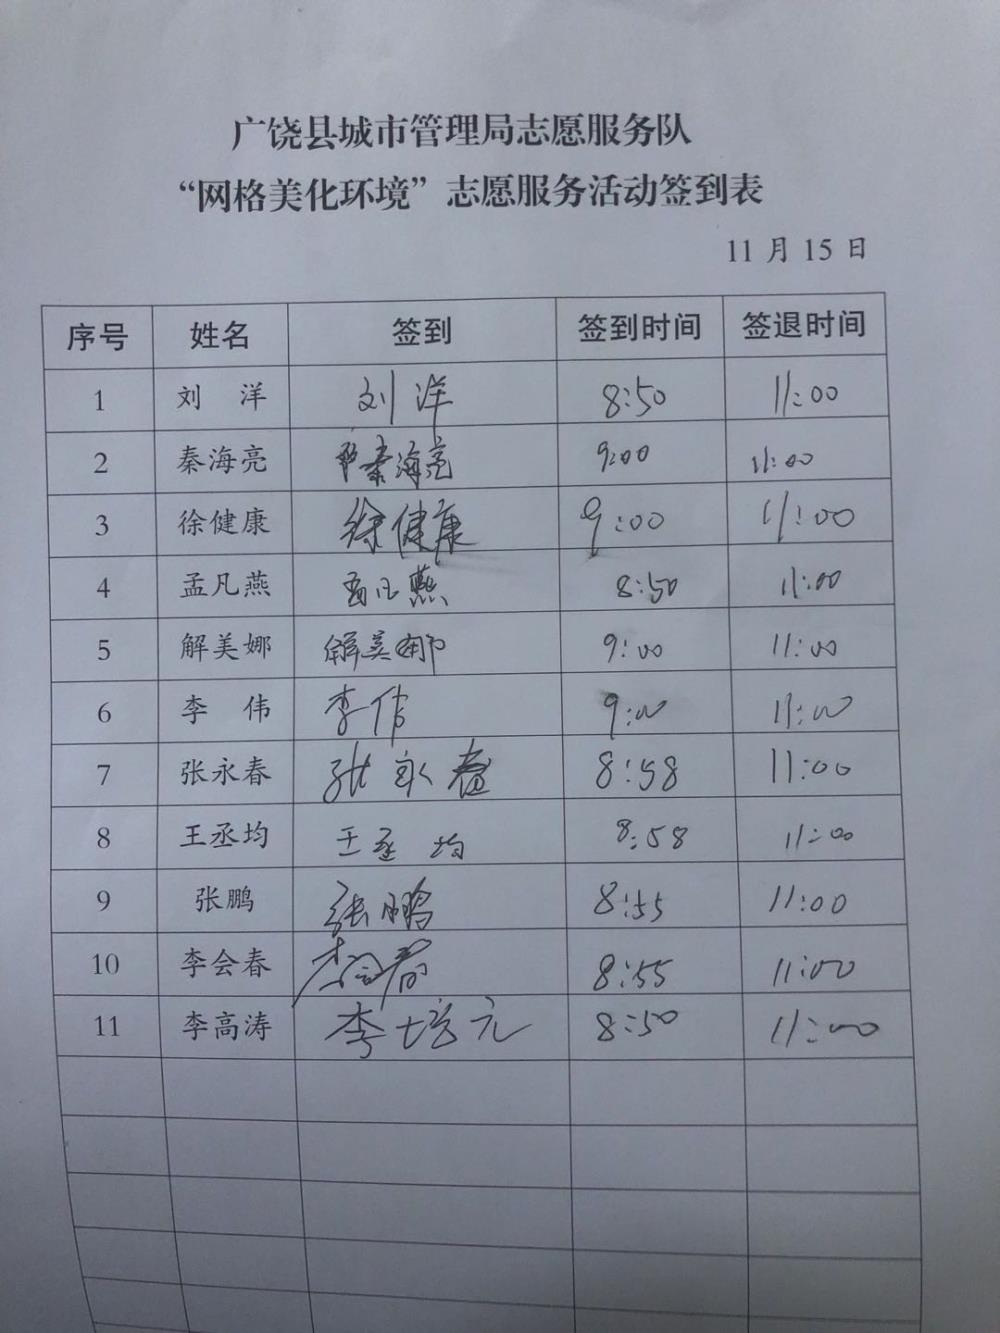 广饶县城市管理局志愿服务队
“网格美化环境”志愿服务活动签到表
11 月 15 日
序号 姓名 签到 签到时间 签退时间
1 刘 洋 刘洋 8:50 11:00
2 秦海亮 秦海亮 9:00 11:00
3 徐健康 徐健康 9:00 11:00
4 孟凡燕 孟凡燕 8:50 11:00
5 解美娜 解美娜 9:00 11:00
6 李 伟 李伟 9:00 11:00
7 张永春 张永春 8:58 11:00
8 王丞均 王丞均 8:58 11:00
9 张鹏 张鹏 8:55 11:00
10 李会春 李会春 8:55 11:00
11 李高涛 李培元 8:50 11:00